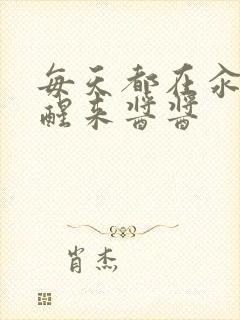 每天都在汆
醒来酱酱
肖杰